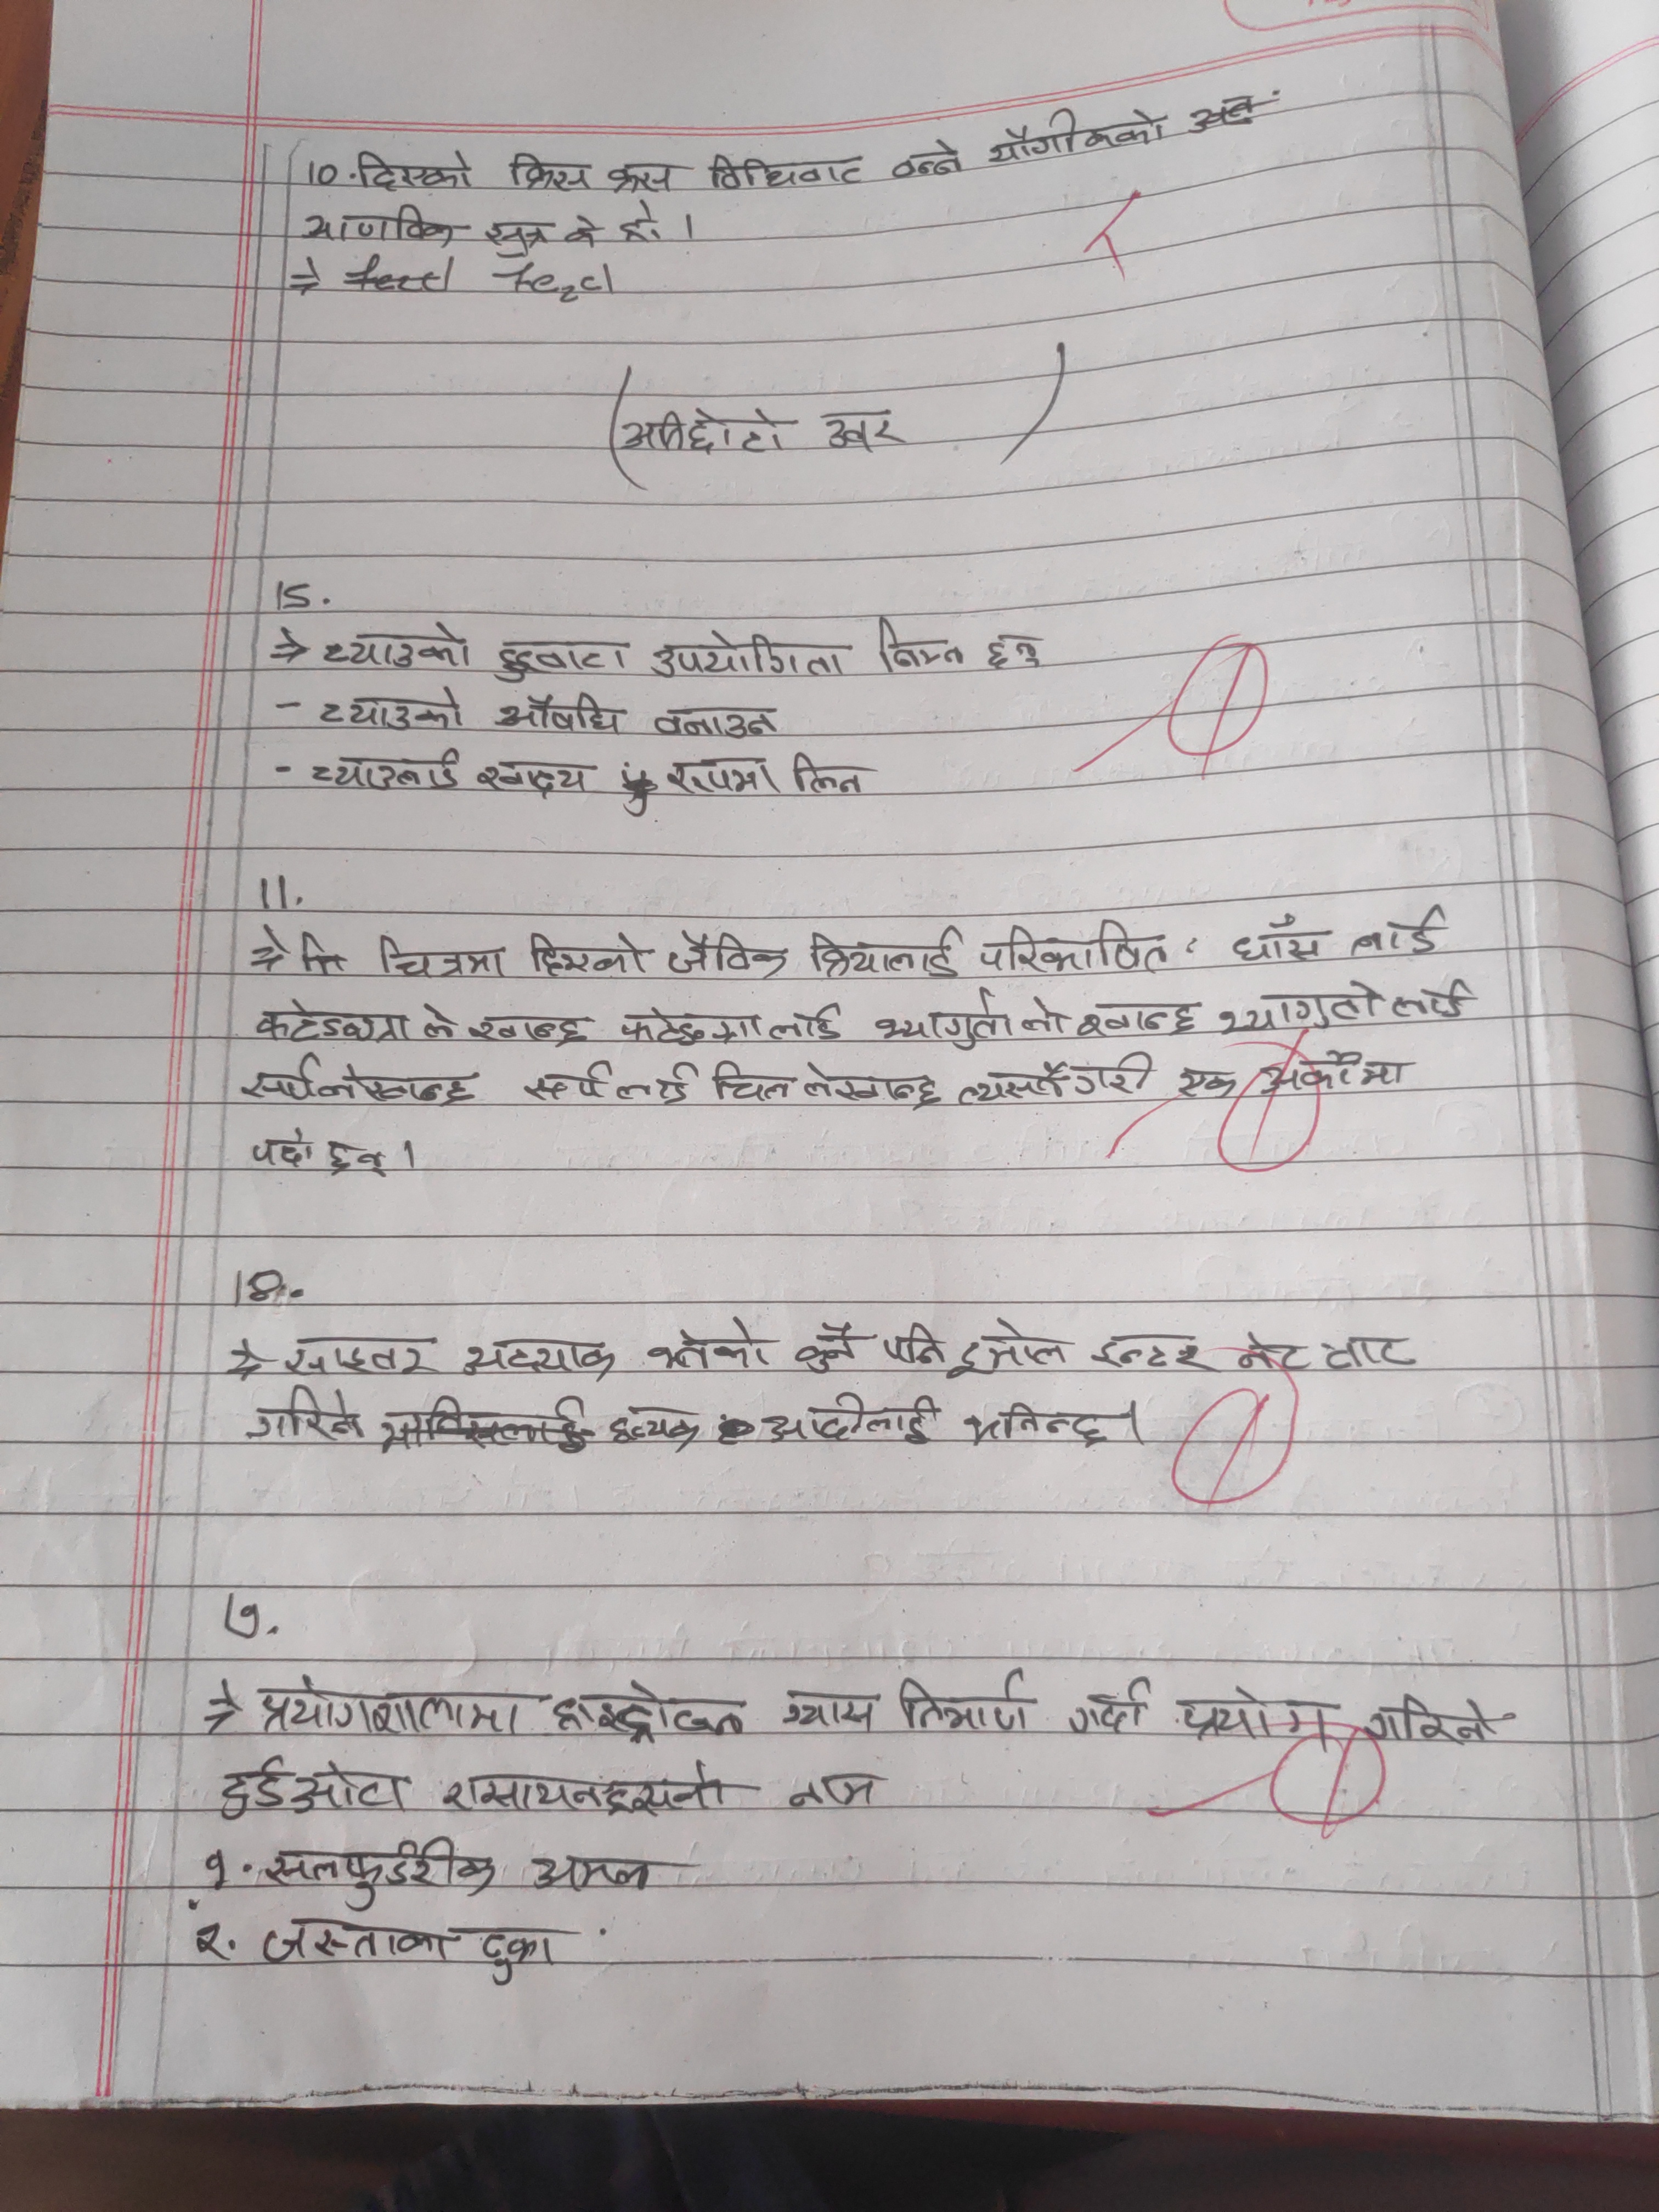 10. दिएको क्रिस क्रस विधिवाट वन्ने यौगीकको
आणविक सुत्र के हो।
⇒ Fe₂cl
(अतिछोटो उत्तर)
15.
⇒ च्याउको दुइवाटा उपयोगिता निम्न छन्
- च्याउको औषधि वनाउन
- च्याउलाई खाद्य रुपमा लिन
11.
⇒ चित्रमा दिएको जैविक क्रियालाई परिभाषित: घाँस लाई
फटेङ्ग्रा ले खान्छ फटेङ्ग्रा लाई भ्यागुताले खान्छ भ्यागुतो लाई
सर्पलेखान्छ सर्प लाई चिल लेखान्छ त्यसतैगरी एक अर्कोमा
पर्दा छन्।
18.
⇒ साइवर अट्याक भनेको कुनै पनि इमोल इन्टर नेट वाट
गरिने ह्याक आदीलाई भनिन्छ।
७.
⇒ प्रयोगशालामा हाइड्रोजन ग्यास निमार्ण गर्दा प्रयोग गरिने
दुईओटा रासायनहरुको नाम
१. सलफुईरीक अम्ल
२. जस्ताका टुक्रा